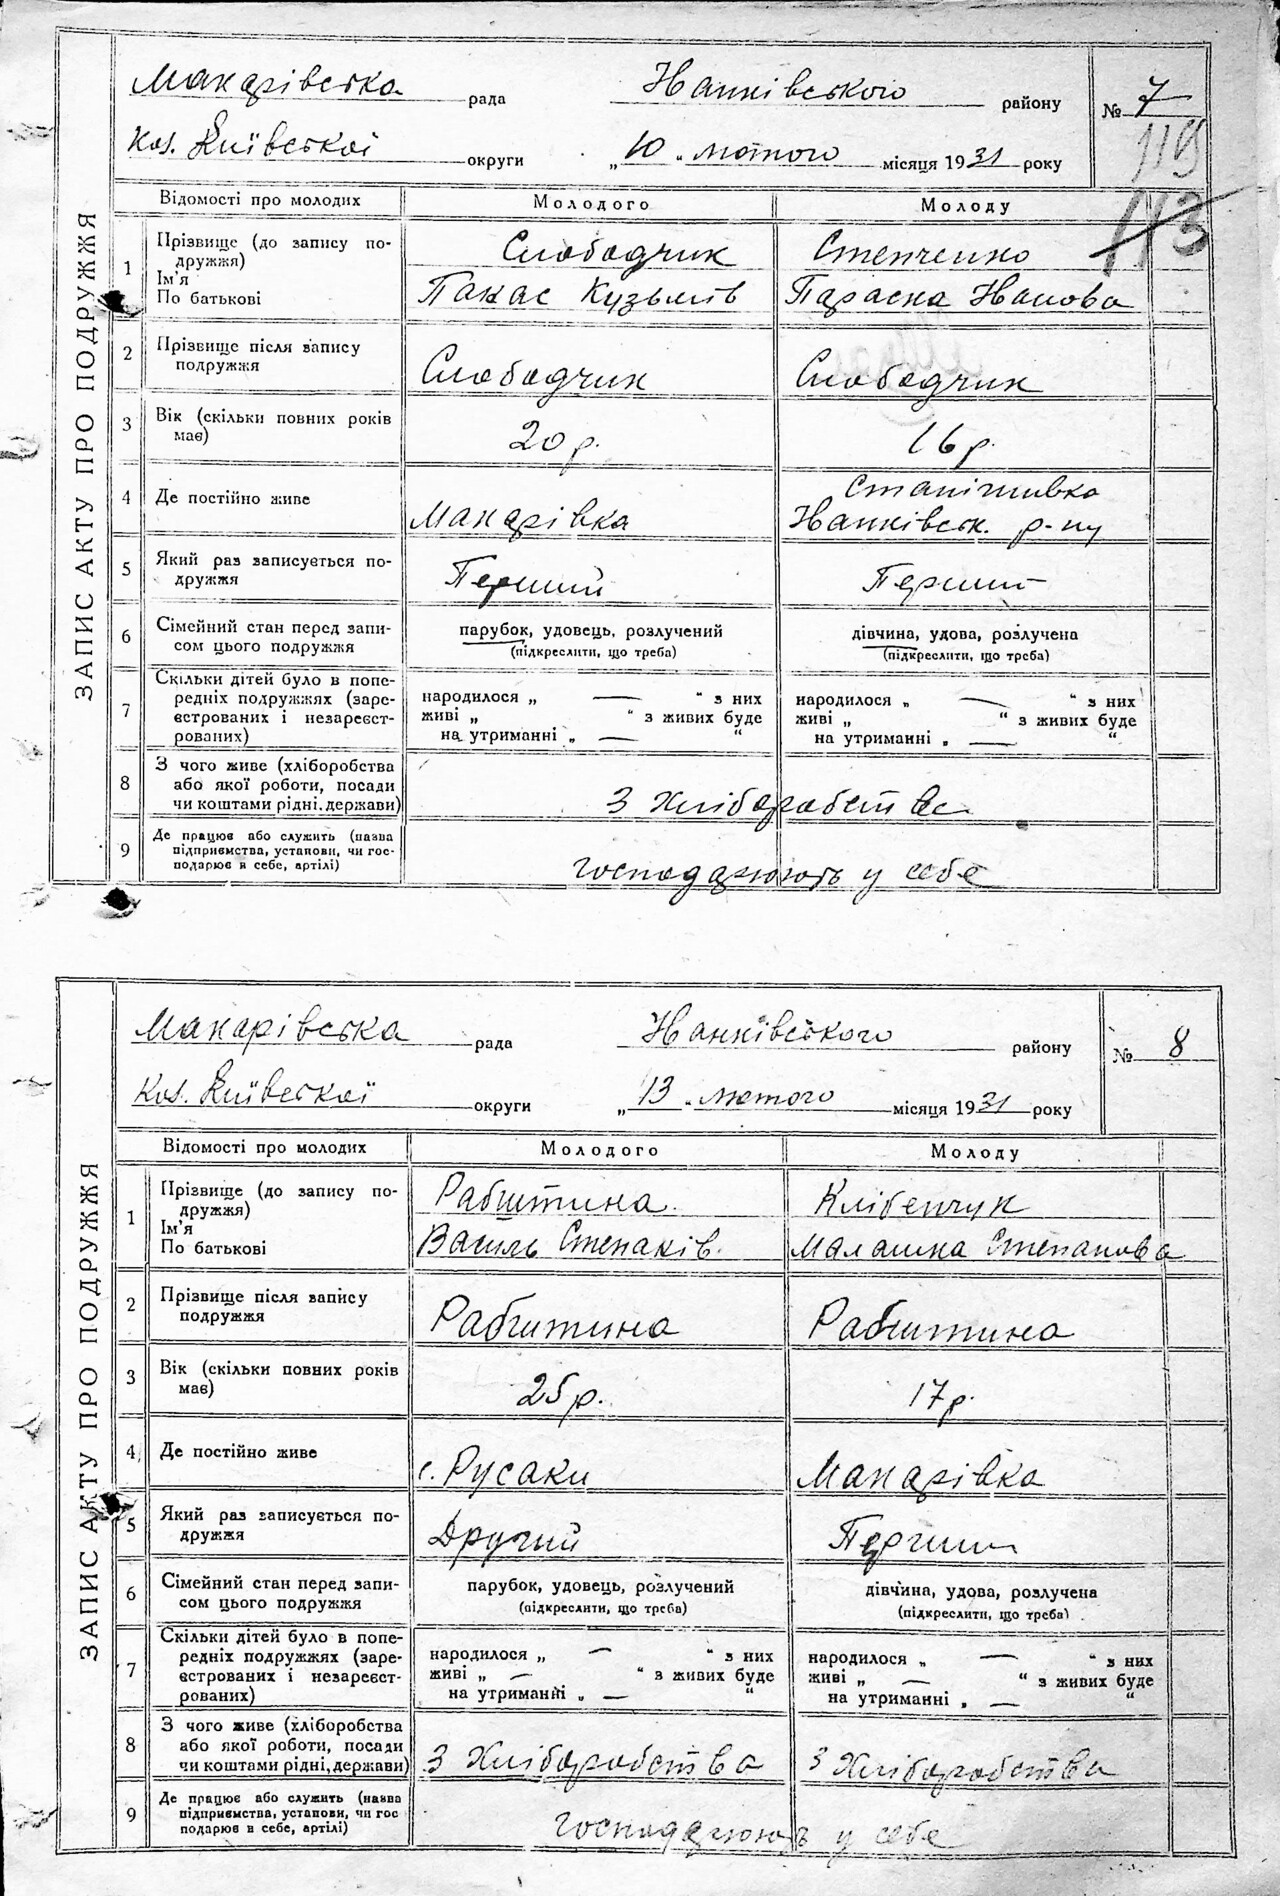 ЗАПИС АКТУ ПРО ПОДРУЖЖЯ
Макарівська рада Іванківського району № 7
Кол. Київської округи „10" лютого місяця 1931 року
119
113
Відомості про молодих Молодого Молоду
1 Прізвище (до запису подружжя) Слободчик Стенченко
Ім'я
По батькові Панас Кузьмів Параска Іванова
2 Прізвище після запису подружжя Слободчик Слободчик
3 Вік (скільки повних років має) 20 р. 16 р.
4 Де постійно живе Макарівка Станішивка Іванківськ. р-ну
5 Який раз записується подружжя Перший Перший
6 Сімейний стан перед записом цього подружжя парубок, удовець, розлучений дівчина, удова, розлучена
(підкреслити, що треба) (підкреслити, що треба)
7 Скільки дітей було в попередніх подружжях (зареєстрованих і незареєстрованих)
народилося „ — " з них народилося „ — " з них
живі „ " з живих буде живі „ " з живих буде
на утриманні „ — " на утриманні „ — "
8 З чого живе (хліборобства або якої роботи, посади чи коштами рідні, держави) З хліборобства
9 Де працює або служить (назва підприємства, установи, чи господарює в себе, артілі) господарюють у себе
ЗАПИС АКТУ ПРО ПОДРУЖЖЯ
Макарівська рада Іванківського району № 8
Кол. Київської округи „13" лютого місяця 1931 року
Відомості про молодих Молодого Молоду
1 Прізвище (до запису подружжя) Рабштина Клібенчук
Ім'я
По батькові Василь Степанів Малашка Степанова
2 Прізвище після запису подружжя Рабштина Рабштина
3 Вік (скільки повних років має) 25 р. 17 р.
4 Де постійно живе с. Русаки Макарівка
5 Який раз записується подружжя Другий Перший
6 Сімейний стан перед записом цього подружжя парубок, удовець, розлучений дівчина, удова, розлучена
(підкреслити, що треба) (підкреслити, що треба)
7 Скільки дітей було в попередніх подружжях (зареєстрованих і незареєстрованих)
народилося „ — " з них народилося „ — " з них
живі „ — " з живих буде живі „ — " з живих буде
на утриманні „ — " на утриманні „ — "
8 З чого живе (хліборобства або якої роботи, посади чи коштами рідні, держави) З хліборобства З хліборобства
9 Де працює або служить (назва підприємства, установи, чи господарює в себе, артілі) господарюють у себе